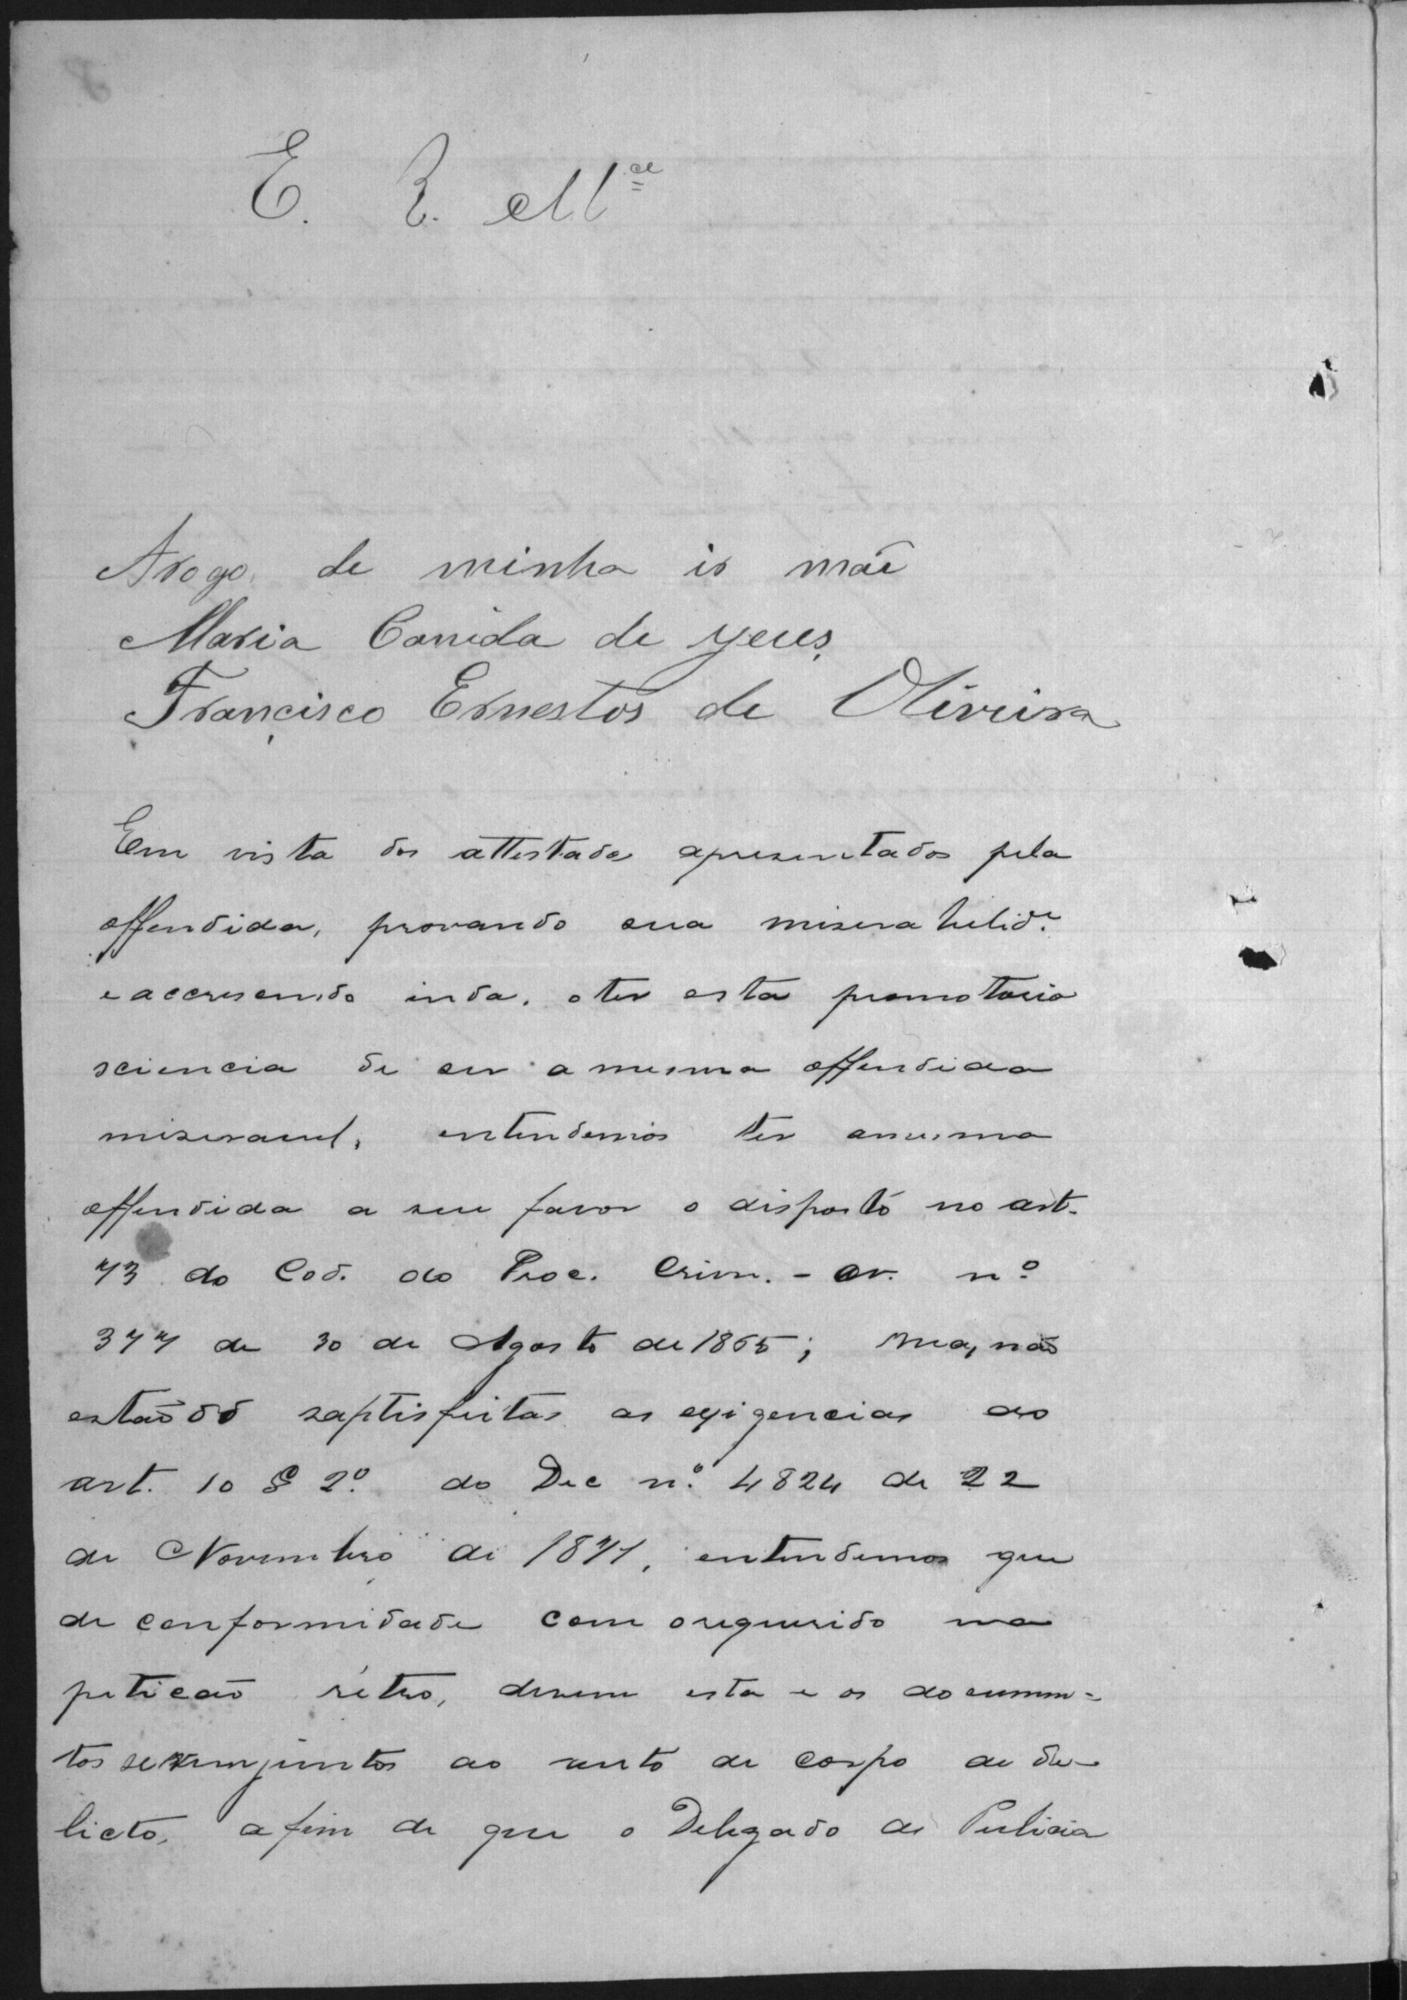 E. R. M.ce
Arogo de minha is mãe
Maria Canida de Jeus,
Francisco Ernestos de Oliveira
Em vista dos attestados apresentados pela
offendida, provando sua miserabilid.e
e accrescendo inda, o ter esta promotoria
sciencia de ser a mesma offendida
miseravel, entendemos ter amesma
offendida a seu favor o disposto no art.
73 do Cod. do Proc. Crim. - av. nº
377 de 30 de Agosto de 1865; mas, não
estão satisfeitas as exigencias do
art. 10 § 2º. do Dec nº. 4824 de 22
de Novembro de 1871, entendemos que
de conformidade com orequerido na
petição rétro, devem esta e os documen=
tos serem juntos ao auto de corpo de de-
licto, a fim de que o Delegado de Pulicia